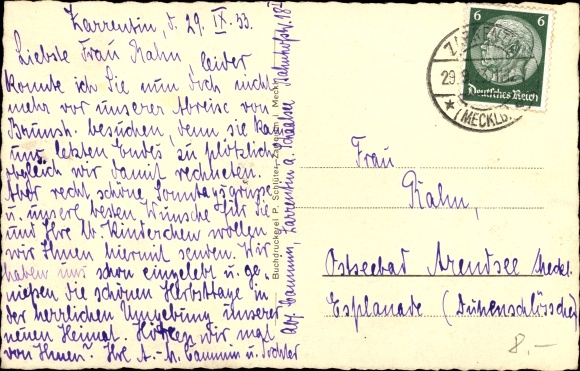 Zarrentin, d. 29. IX. 33.
Liebste Frau Rahn, leider
konnte ich Sie nun doch nicht
mehr vor unserer Abreise von
Brunsh. besuchen, denn sie kam
uns letzten Endes zu plötzlich
obgleich wir damit rechneten.
Aber recht schöne Sonntagsgrüsse
u. unsere besten Wünsche für Sie
und Ihre lb. Kinderchen wollen
wir Ihnen hiermit senden. Wir
haben uns schon eingelebt u. ge-
nießen die schönen Herbsttage in
der herrlichen Umgebung unserer
neuen Heimat. Hören wir mal
von Ihnen? Ihre A.-M. Cammin u. Tochter
Abs. Cammin, Zarrentin a. Schaalsee Bahnhofstr. 18
Buchdruckerei P. Schlüter, Zarrentin i. Meckl.
6 6
Deutsches Reich
ZARRENTIN
29.9.
(MECKLB.)
Frau
Rahn,
Ostseebad Arendsee Meckl.
Esplanade (Dünenschlösschen)
8.-